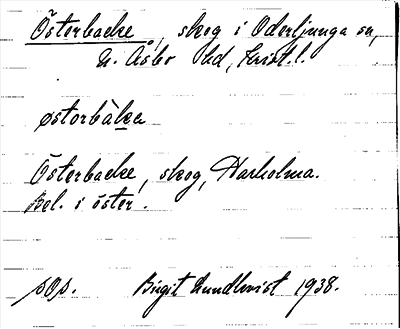 Österbacke, skog i Oderljunga sn,
N. Åsbo hd, Krist. l.
østorbàka
Österbacke, skog, Harholma.
Bel. i öster.
sOp. Birgit Lundkvist 1938.